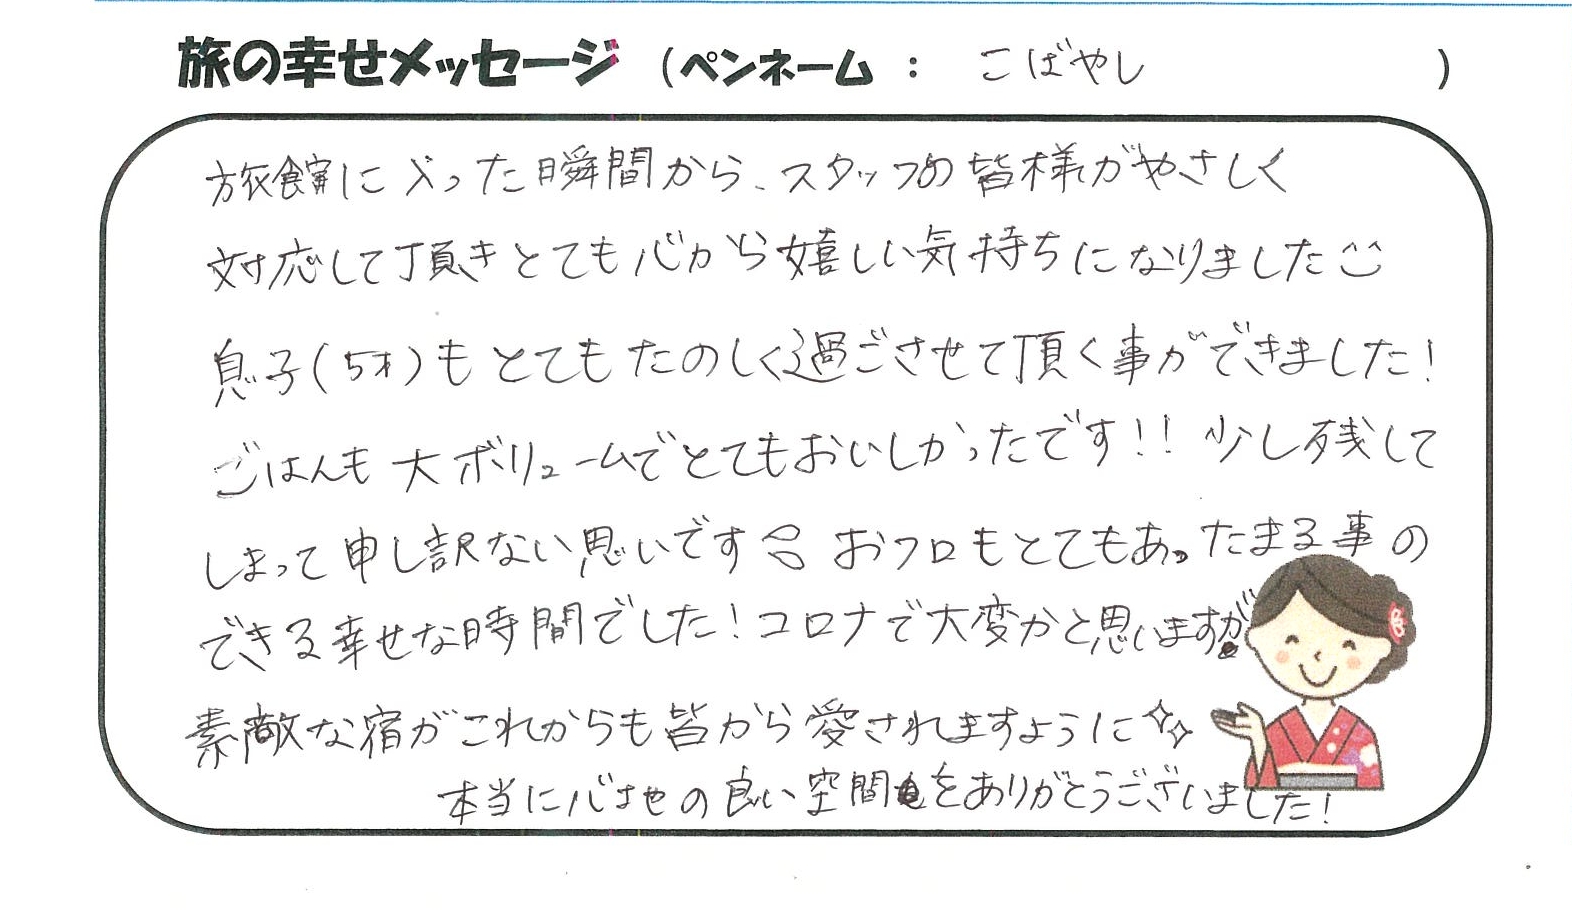 旅の幸せメッセージ (ペンネーム : こばやし )
旅館に入った瞬間から、スタッフの皆様がやさしく
対応して頂きとても心から嬉しい気持ちになりました
息子(5才)もとてもたのしく過ごさせて頂く事ができました!
ごはんも大ボリュームでとてもおいしかったです!! 少し残して
しまって申し訳ない思いです おフロもとてもあったまる事の
できる幸せな時間でした!コロナで大変かと思いますが
素敵な宿がこれからも皆から愛されますように
本当に心地の良い空間をありがとうございました!